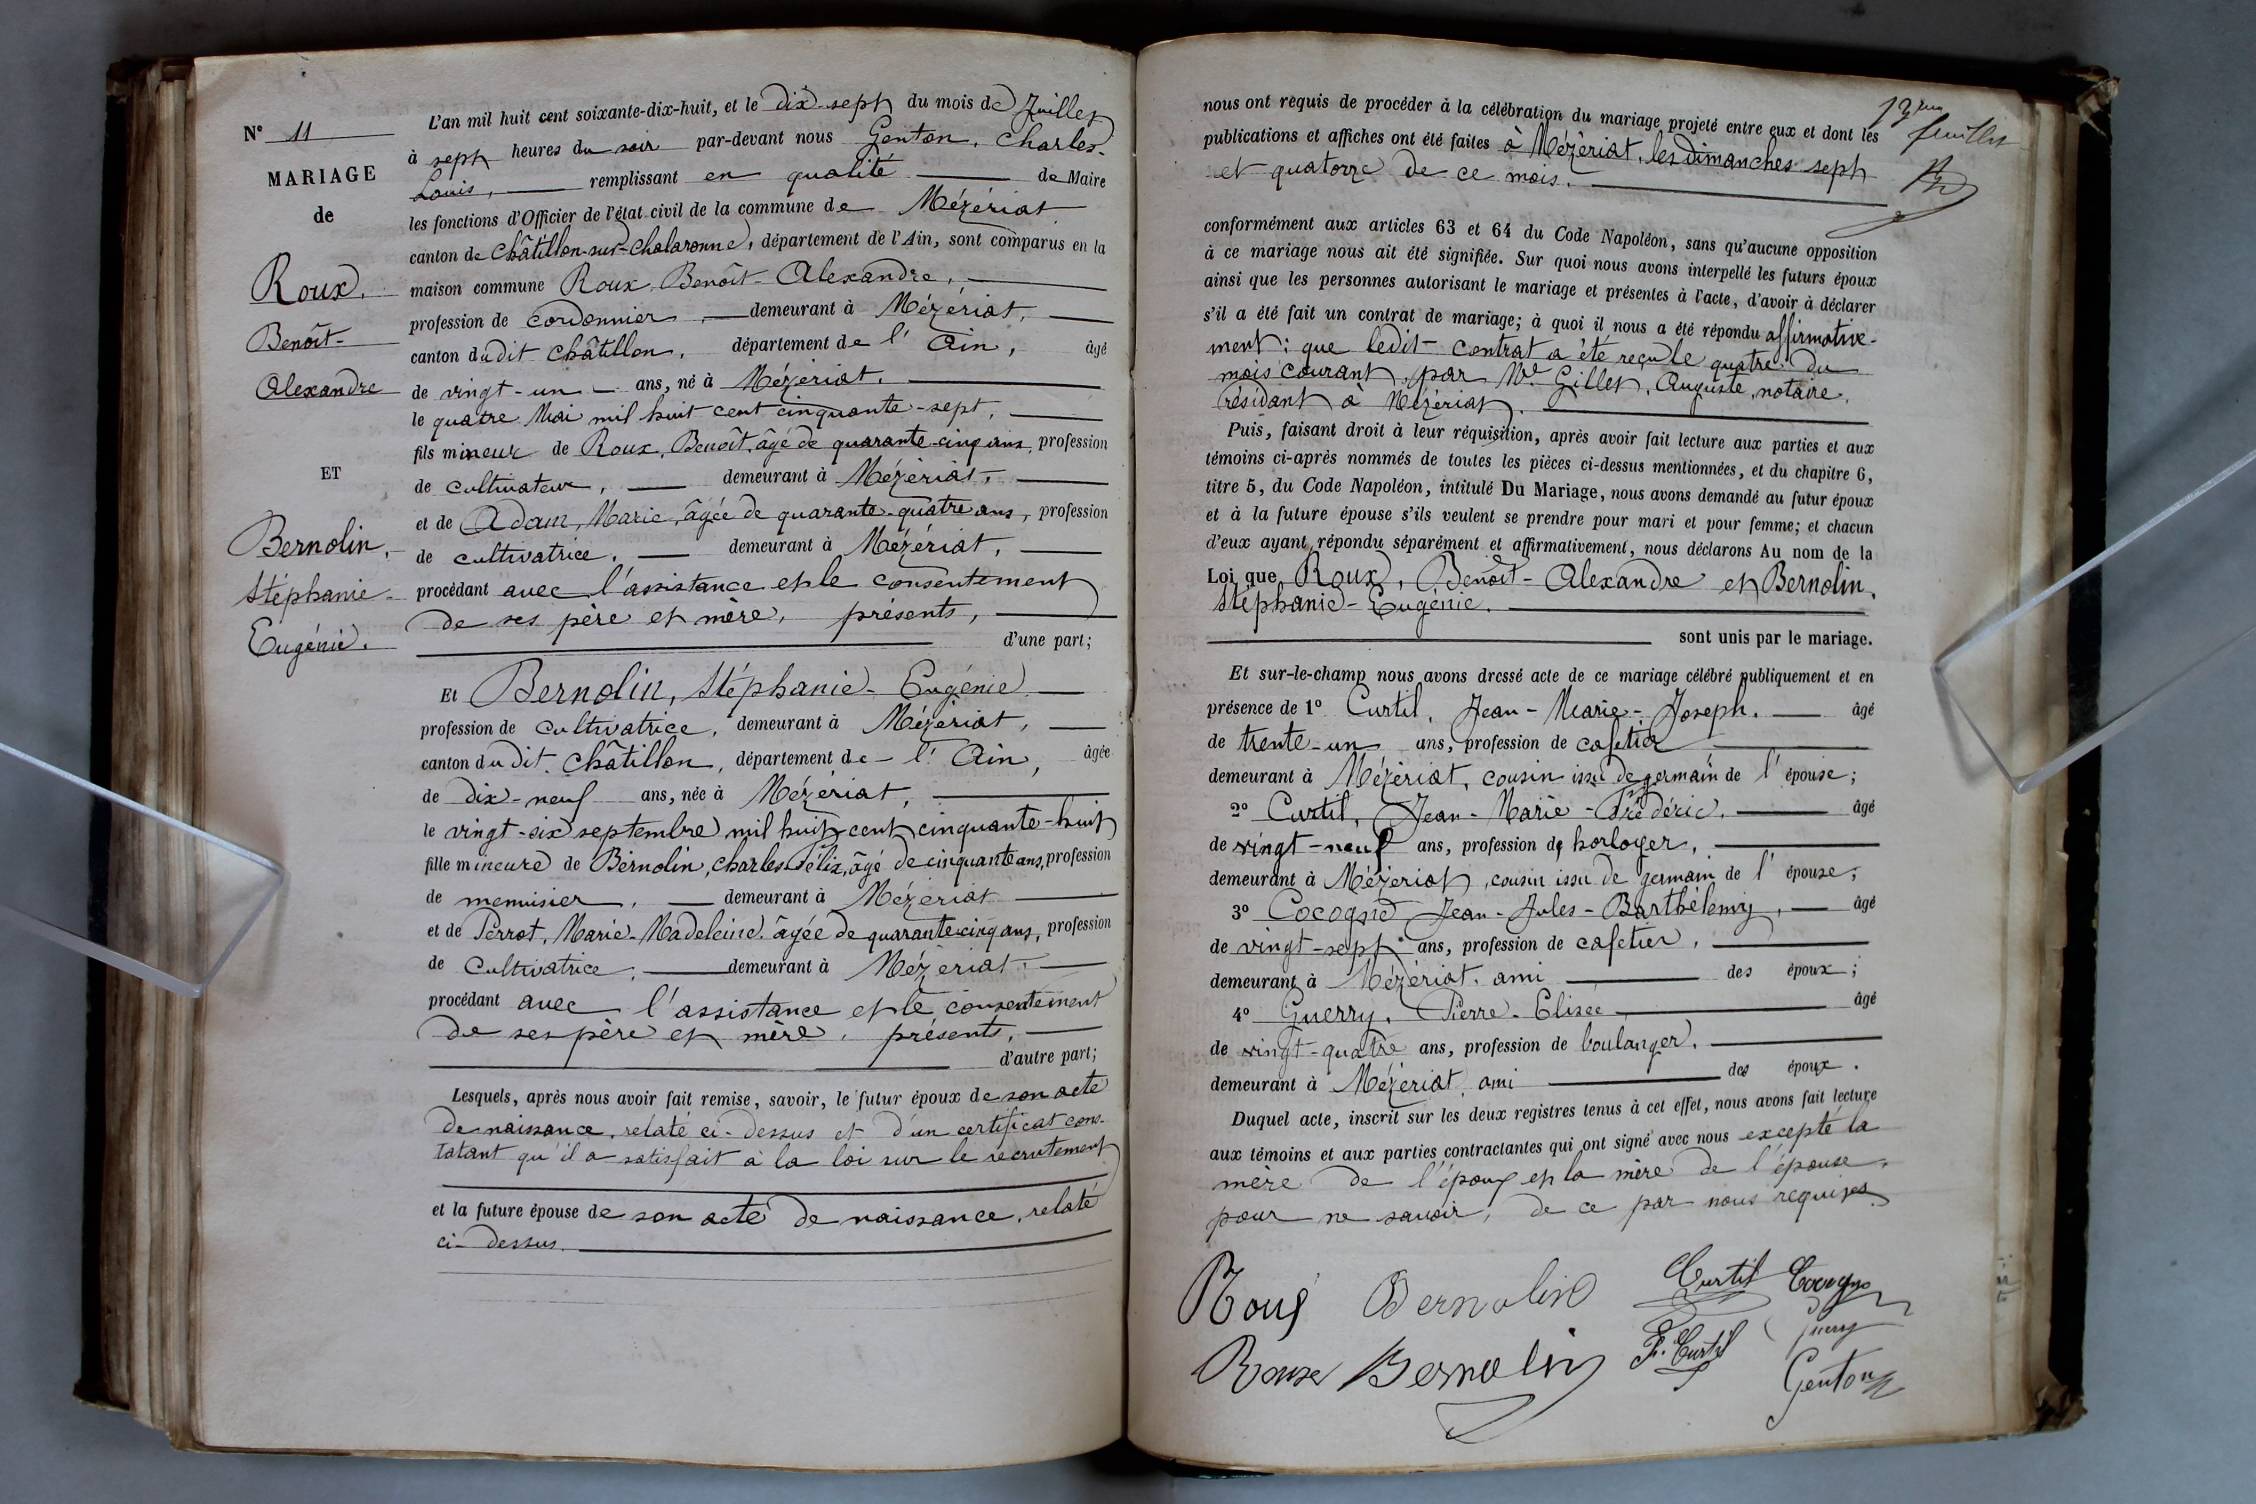 N° 11
MARIAGE
de
Roux,
Benoît-
Alexandre
ET
Bernolin,
Stéphanie-
Eugénie.
L'an mil huit cent soixante-dix-huit, et le dix-sept du mois de Juillet
à sept heures du soir par-devant nous Genton, Charles-
Louis, remplissant en qualité de Maire
les fonctions d'Officier de l'état civil de la commune de Mézériat
canton de Châtillon-sur-Chalaronne, département de l'Ain, sont comparus en la
maison commune Roux, Benoît-Alexandre,
profession de cordonnier, demeurant à Mézériat,
canton dudit Châtillon, département de l'Ain, âgé
de vingt-un ans, né à Mézériat,
le quatre Mai mil huit cent cinquante-sept,
fils mineur de Roux, Benoît, âgé de quarante-cinq ans, profession
de cultivateur, demeurant à Mézériat,
et de Adam, Marie, âgée de quarante-quatre ans, profession
de cultivatrice, demeurant à Mézériat,
procédant avec l'assistance et le consentement
de ses père et mère, présents,
d'une part;
Et Bernolin, Stéphanie-Eugénie
profession de cultivatrice, demeurant à Mézériat,
canton dudit Châtillon, département de l'Ain, âgée
de dix-neuf ans, née à Mézériat,
le vingt-six septembre mil huit cent cinquante-huit
fille mineure de Bernolin, Charles-Félix, âgé de cinquante ans, profession
de menuisier, demeurant à Mézériat
et de Perrot, Marie-Madeleine, âgée de quarante-cinq ans, profession
de Cultivatrice, demeurant à Mézériat,
procédant avec l'assistance et le consentement
de ses père et mère, présents,
d'autre part;
Lesquels, après nous avoir fait remise, savoir, le futur époux de son acte
de naissance, relaté ci-dessus et d'un certificat cons-
tatant qu'il a satisfait à la loi sur le recrutement
et la future épouse de son acte de naissance, relaté
ci-dessus.
13eme
feuillet
nous ont requis de procéder à la célébration du mariage projeté entre eux et dont les
publications et affiches ont été faites à Mézériat, les dimanches sept
et quatorze de ce mois.
conformément aux articles 63 et 64 du Code Napoléon, sans qu'aucune opposition
à ce mariage nous ait été signifiée. Sur quoi nous avons interpellé les futurs époux
ainsi que les personnes autorisant le mariage et présentes à l'acte, d'avoir à déclarer
s'il a été fait un contrat de mariage; à quoi il nous a été répondu affirmative-
ment: que ledit contrat a été reçu le quatre du
mois courant, par Me Gillet, Auguste, notaire,
résidant à Mézériat.
Puis, faisant droit à leur réquisition, après avoir fait lecture aux parties et aux
témoins ci-après nommés de toutes les pièces ci-dessus mentionnées, et du chapitre 6,
titre 5, du Code Napoléon, intitulé Du Mariage, nous avons demandé au futur époux
et à la future épouse s'ils veulent se prendre pour mari et pour femme; et chacun
d'eux ayant répondu séparément et affirmativement, nous déclarons Au nom de la
Loi que Roux, Benoît-Alexandre et Bernolin,
Stéphanie-Eugénie.
sont unis par le mariage.
Et sur-le-champ nous avons dressé acte de ce mariage célébré publiquement et en
présence de 1° Curtil, Jean-Marie-Joseph, âgé
de trente-un ans, profession de cafetier
demeurant à Mézériat, cousin issu de germain de l'épouse;
2° Curtil, Jean-Marie-Frédéric, âgé
de vingt-neuf ans, profession de horloger,
demeurant à Mézériat, cousin issu de germain de l'épouse;
3° Cocogne Jean-Jules-Barthélemy, âgé
de vingt-sept ans, profession de cafetier,
demeurant à Mézériat, ami des époux;
4° Guerry, Pierre-Elisée âgé
de vingt-quatre ans, profession de boulanger,
demeurant à Mézériat, ami des époux.
Duquel acte, inscrit sur les deux registres tenus à cet effet, nous avons fait lecture
aux témoins et aux parties contractantes qui ont signé avec nous excepté la
mère de l'époux et la mère de l'épouse,
pour ne savoir, de ce par nous requises.
Roux Bernolin Curtil Cocogne
Guerry
Roux Bernolin F. Curtil
Genton